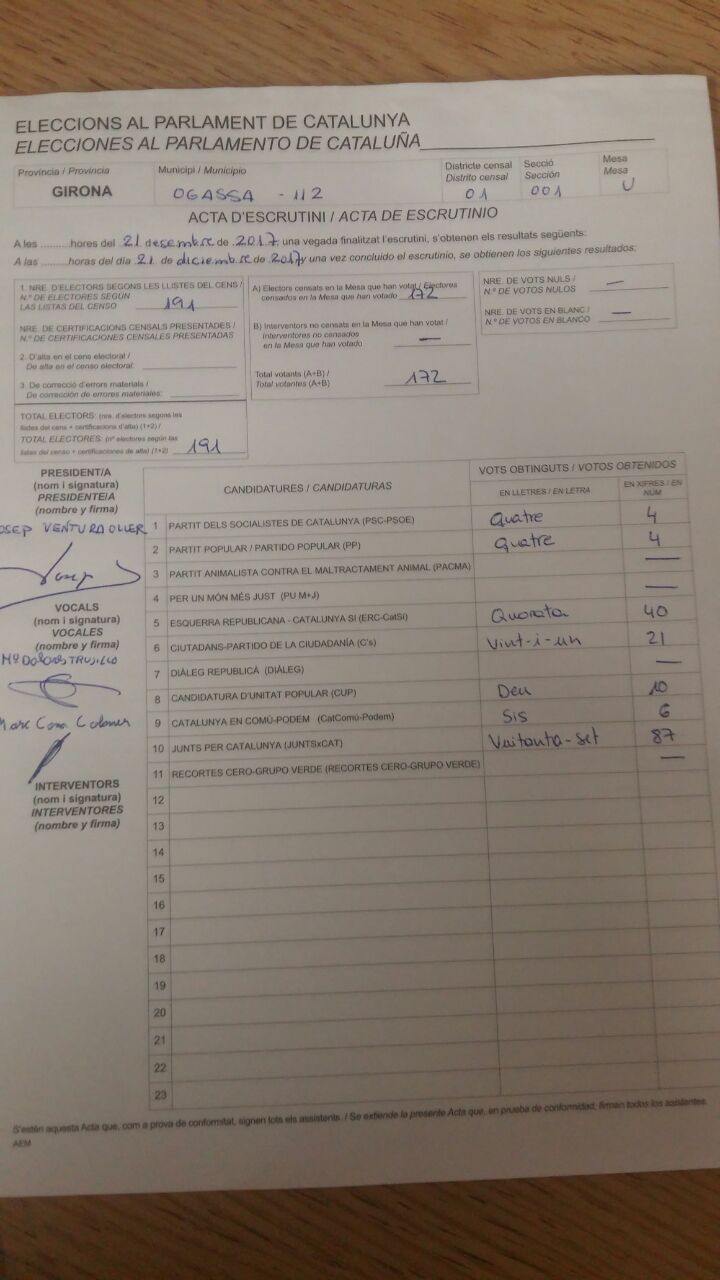 ELECCIONS AL PARLAMENT DE CATALUNYA
ELECCIONES AL PARLAMENTO DE CATALUÑA
Província / Provincia
GIRONA
Municipi / Municipio
OGASSA - 112
Districte censal
Distrito censal
01
Secció
Sección
001
Mesa
Mesa
U
ACTA D'ESCRUTINI / ACTA DE ESCRUTINIO
A les ..........hores del 21 desembre de 2017 una vegada finalitzat l'escrutini, s'obtenen els resultats següents:
A las ..........horas del día 21 de diciembre de 2017 y una vez concluido el escrutinio, se obtienen los siguientes resultados:
1. NRE. D'ELECTORS SEGONS LES LLISTES DEL CENS /
N.º DE ELECTORES SEGÚN
LAS LISTAS DEL CENSO 191
NRE. DE CERTIFICACIONS CENSALS PRESENTADES /
N.º DE CERTIFICACIONES CENSALES PRESENTADAS
2. D'alta en el cens electoral /
De alta en el censo electoral:
3. De correcció d'errors materials /
De corrección de errores materiales:
TOTAL ELECTORS: (nre. d'electors segons les
llistes del cens + certificacions d'alta) (1+2) /
TOTAL ELECTORES: (nº electores según las
listas del censo + certificaciones de alta) (1+2) 191
A) Electors censats en la Mesa que han votat / Electores
censados en la Mesa que han votado 172
B) Interventors no censats en la Mesa que han votat /
Interventores no censados
en la Mesa que han votado —
Total votants (A+B) /
Total votantes (A+B) 172
NRE. DE VOTS NULS / —
N.º DE VOTOS NULOS
NRE. DE VOTS EN BLANC / —
N.º DE VOTOS EN BLANCO
PRESIDENT/A
(nom i signatura)
PRESIDENTE/A
(nombre y firma)
OSEP VENTURA OLLER
Josep
VOCALS
(nom i signatura)
VOCALES
(nombre y firma)
Mª DOLORS TRUJILLO
Marc Coma Colomer
INTERVENTORS
(nom i signatura)
INTERVENTORES
(nombre y firma)
CANDIDATURES / CANDIDATURAS
VOTS OBTINGUTS / VOTOS OBTENIDOS
EN LLETRES / EN LETRA
EN XIFRES / EN NÚM
1 PARTIT DELS SOCIALISTES DE CATALUNYA (PSC-PSOE) Quatre 4
2 PARTIT POPULAR / PARTIDO POPULAR (PP) Quatre 4
3 PARTIT ANIMALISTA CONTRA EL MALTRACTAMENT ANIMAL (PACMA) —
4 PER UN MÓN MÉS JUST (PU M+J) —
5 ESQUERRA REPUBLICANA - CATALUNYA SI (ERC-CatSI) Quaranta 40
6 CIUTADANS-PARTIDO DE LA CIUDADANÍA (C's) Vint-i-un 21
7 DIÀLEG REPUBLICÀ (DIÀLEG) —
8 CANDIDATURA D'UNITAT POPULAR (CUP) Deu 10
9 CATALUNYA EN COMÚ-PODEM (CatComú-Podem) Sis 6
10 JUNTS PER CATALUNYA (JUNTSxCAT) Vuitanta-set 87
11 RECORTES CERO-GRUPO VERDE (RECORTES CERO-GRUPO VERDE) —
12
13
14
15
16
17
18
19
20
21
22
23
S'estén aquesta Acta que, com a prova de conformitat, signen tots els assistents. / Se extiende la presente Acta que, en prueba de conformidad, firman todos los asistentes.
AEM